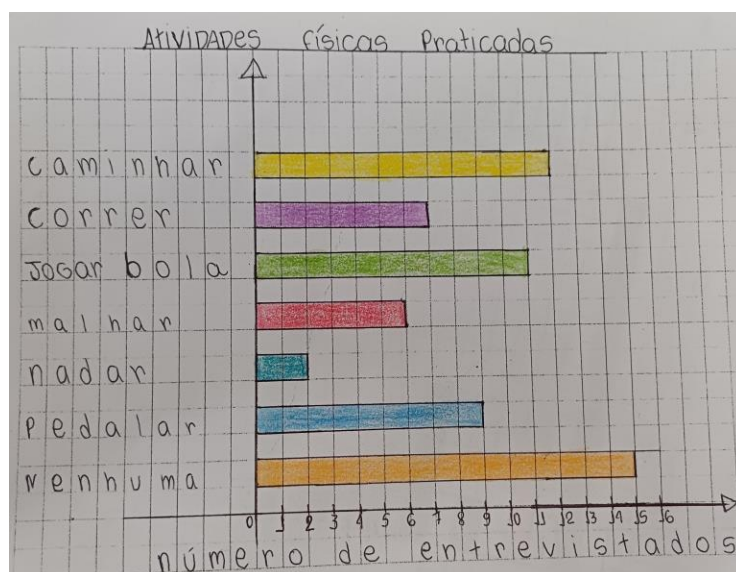 AtiVIDADES físicas Praticadas
caminhar
correr
JOGar bola
malhar
nadar
Pedalar
Nenhuma
0 1 2 3 4 5 6 7 8 9 10 11 12 13 14 15 16
número de entrevistados